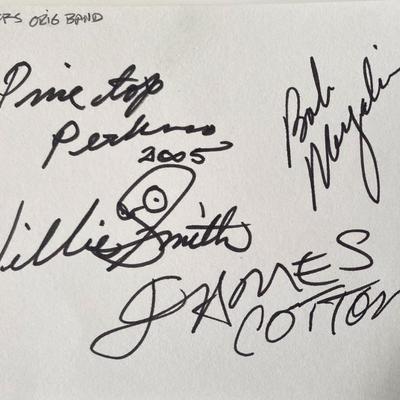 RS ORIG BAND
Pine top
Perkins
2005
Willie Smith
Bob
Margolin
JAMES
COTTON